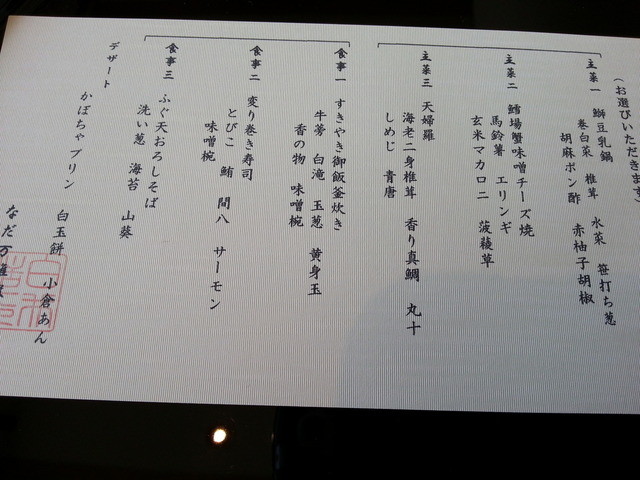 (お選びいただきます)
主菜一 鰤豆乳鍋 水菜 笹打ち葱
巻白菜 椎茸 赤柚子胡椒
胡麻ポン酢
主菜二 鱈場蟹味噌チーズ焼
馬鈴薯 エリンギ
玄米マカロニ 菠薐草
主菜三 天婦羅
海老二身椎茸 香り真鯛 丸十
しめじ 青唐
食事一 すきやき御飯釜炊き
牛蒡 白滝 玉葱 黄身玉
香の物 味噌椀
食事二 変り巻き寿司
とびこ 鮪 間八 サーモン
味噌椀
食事三 ふぐ天おろしそば
洗い葱 海苔 山葵
デザート
かぼちゃプリン 白玉餅 小倉あん
なだ万雅